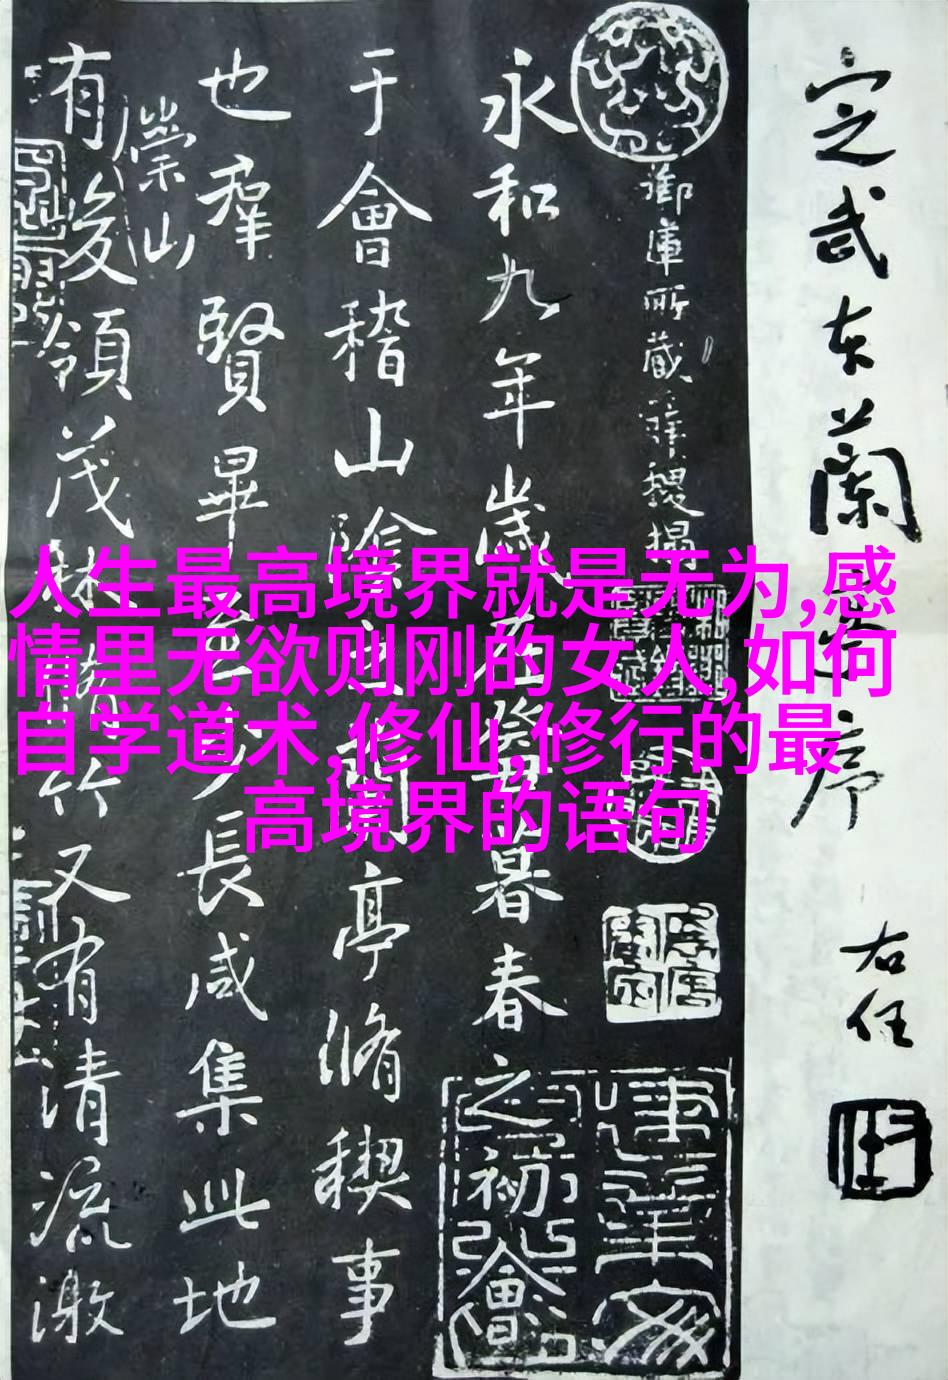 人生最高境界就是无为,感
情里无欲则刚的女人,如何
自学道术,修仙,修行的最
高境界的语句
定武本蘭亭序
右任
御庫所藏薛稷搨
永和九年歲在癸丑暮春之初會
于會稽山陰之蘭亭脩稧事
也羣賢畢至少長咸集此地
有崇山峻領茂林脩竹又有清流激